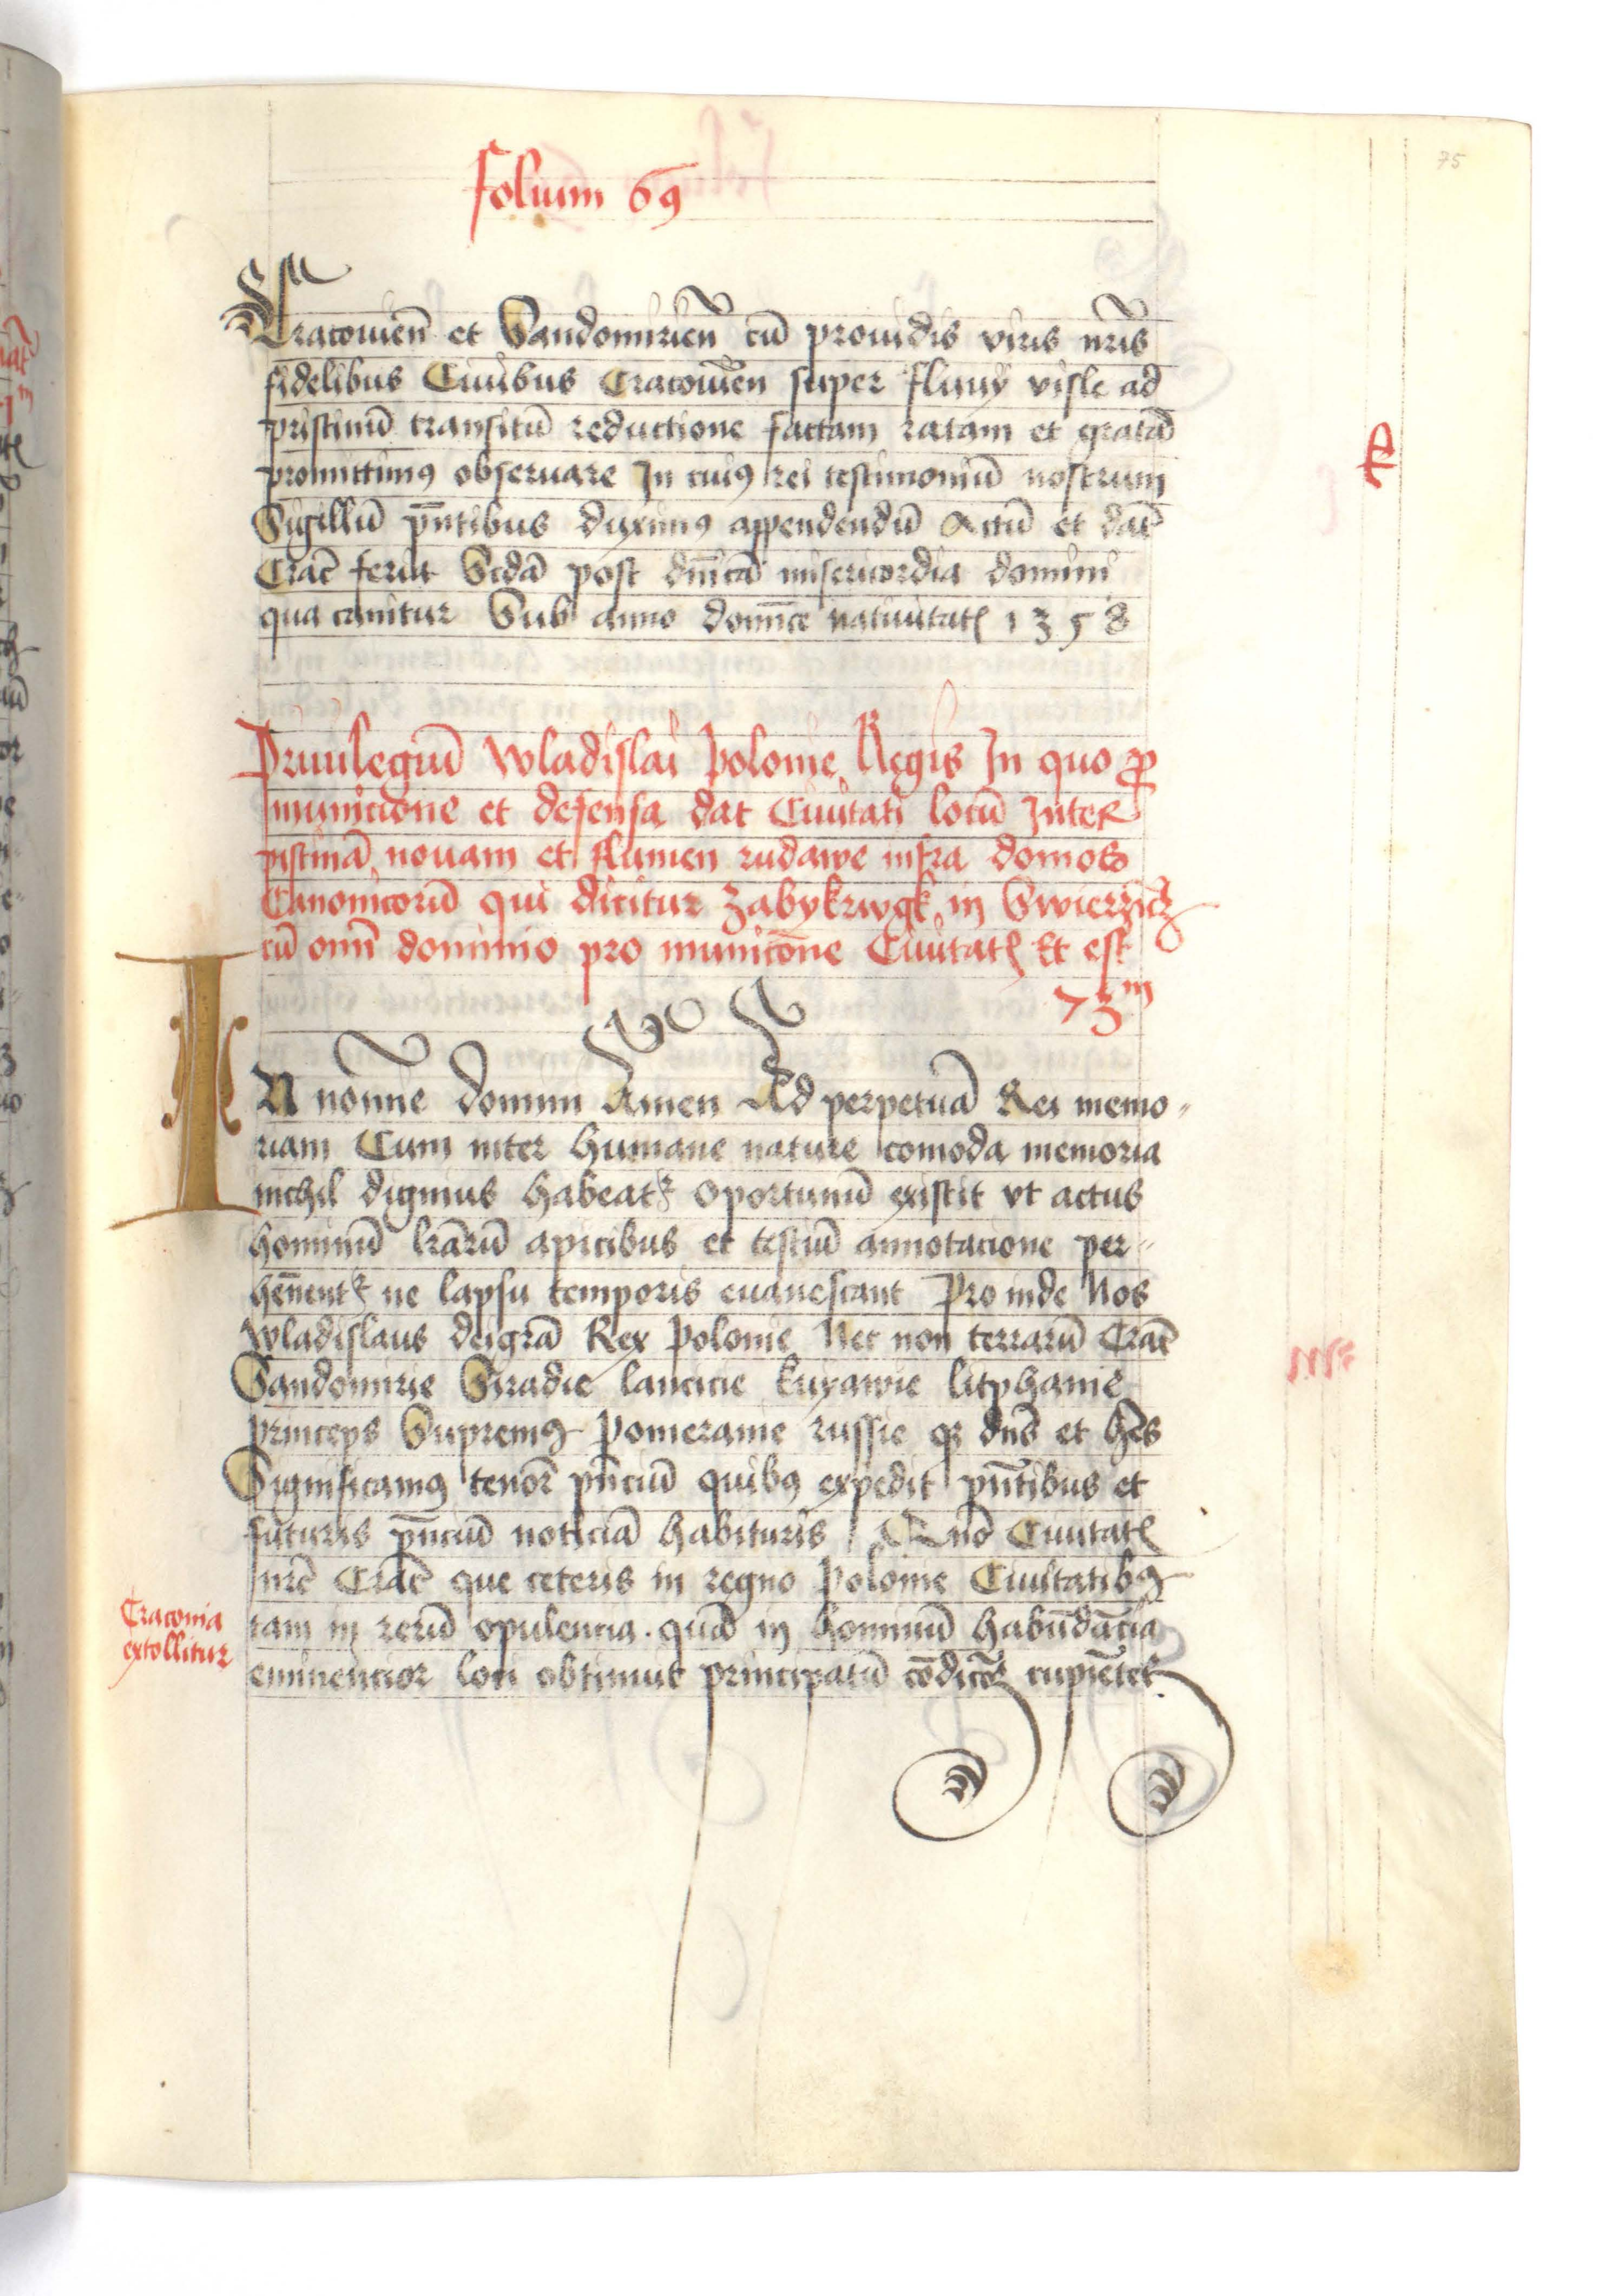 75
folium 69
Cracouien̄ et Sandomirien̄ cū prouidis viris nr̄is
fidelibus Ciuibus Cracouien̄ super fluuy visle ad
pristinū transitū reductione factam ratam et gratā
promittimꝰ obseruare In cuiꝰ rei testimoniū nostrum
Sigillū pn̄tibus duximꝰ appendendū Actū et dat̄
Crac̄ feria Scdā post dn̄icā misericordia domini
qua canitur Sub anno domīce natiuitatꝭ 1358
Priuilegiū Wladislai polonie Regis In quo ꝓ
municione et defensa dat Ciuitati locū Inter
pistrinā nouam et flumen rudawe infra domos
Canonicorū qui dicitur Zabykrwgk in Swierzicz
cū omī dominio pro municōne Ciuitatꝭ Et est
73ᵐ
IN noīne domini Amen Ad perpetuā Rei memo-
riam Cum inter humane nature comoda memoria
nichil dignius habeatᷣ oportunū existit vt actus
hominū lr̄arū apicibus et testiū annotacione per-
hēnentᷣ ne lapsu temporis euanescant Pro inde Nos
Wladislaus deigrā Rex polonie Nec non terrarū Crac̄
Sandomirie Siradie lancicie kuyawie litphanie
princeps Supremꝰ pomeranie russie qꝫ dn̄s et hēs
Significamꝰ tenor̄ pn̄ciū quibꝰ expedit pn̄tibus et
futuris pn̄ciū noticiā habituris Ciuitatꝭ
nr̄e Crac̄ que ceteris in regno polonie Ciuitatibꝰ
tam in rerū opulencia quā in hominū habūdācia
eminencior loci obtinut principatū cōdicōꝫ cupiētes
Craconia
extollitur